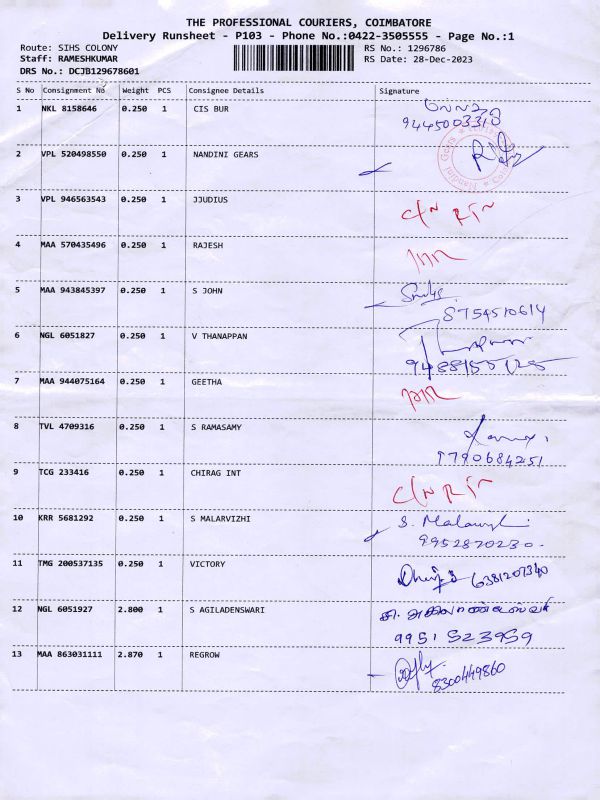 THE PROFESSIONAL COURIERS, COIMBATORE
Delivery Runsheet - P103 - Phone No.:0422-3505555 - Page No.:1
Route: SIHS COLONY RS No.: 1296786
Staff: RAMESHKUMAR RS Date: 28-Dec-2023
DRS No.: DCJB129678601
S No Consignment No Weight PCS Consignee Details Signature
1 NKL 8158646 0.250 1 CIS BUR
9445003313
2 VPL 520498550 0.250 1 NANDINI GEARS
3 VPL 946563543 0.250 1 JJUDIUS
C/N RTN
4 MAA 570435496 0.250 1 RAJESH
5 MAA 943845397 0.250 1 S JOHN
8754510614
6 NGL 6051827 0.250 1 V THANAPPAN
7 MAA 944075164 0.250 1 GEETHA
8 TVL 4709316 0.250 1 S RAMASAMY
9790684251
9 TCG 233416 0.250 1 CHIRAG INT
C/N RTN
10 KRR 5681292 0.250 1 S MALARVIZHI
S. Malarvizhi
9952870230.
11 TMG 200537135 0.250 1 VICTORY
6381207340
12 NGL 6051927 2.800 1 S AGILADENSWARI
9951523959
13 MAA 863031111 2.870 1 REGROW
8300449860